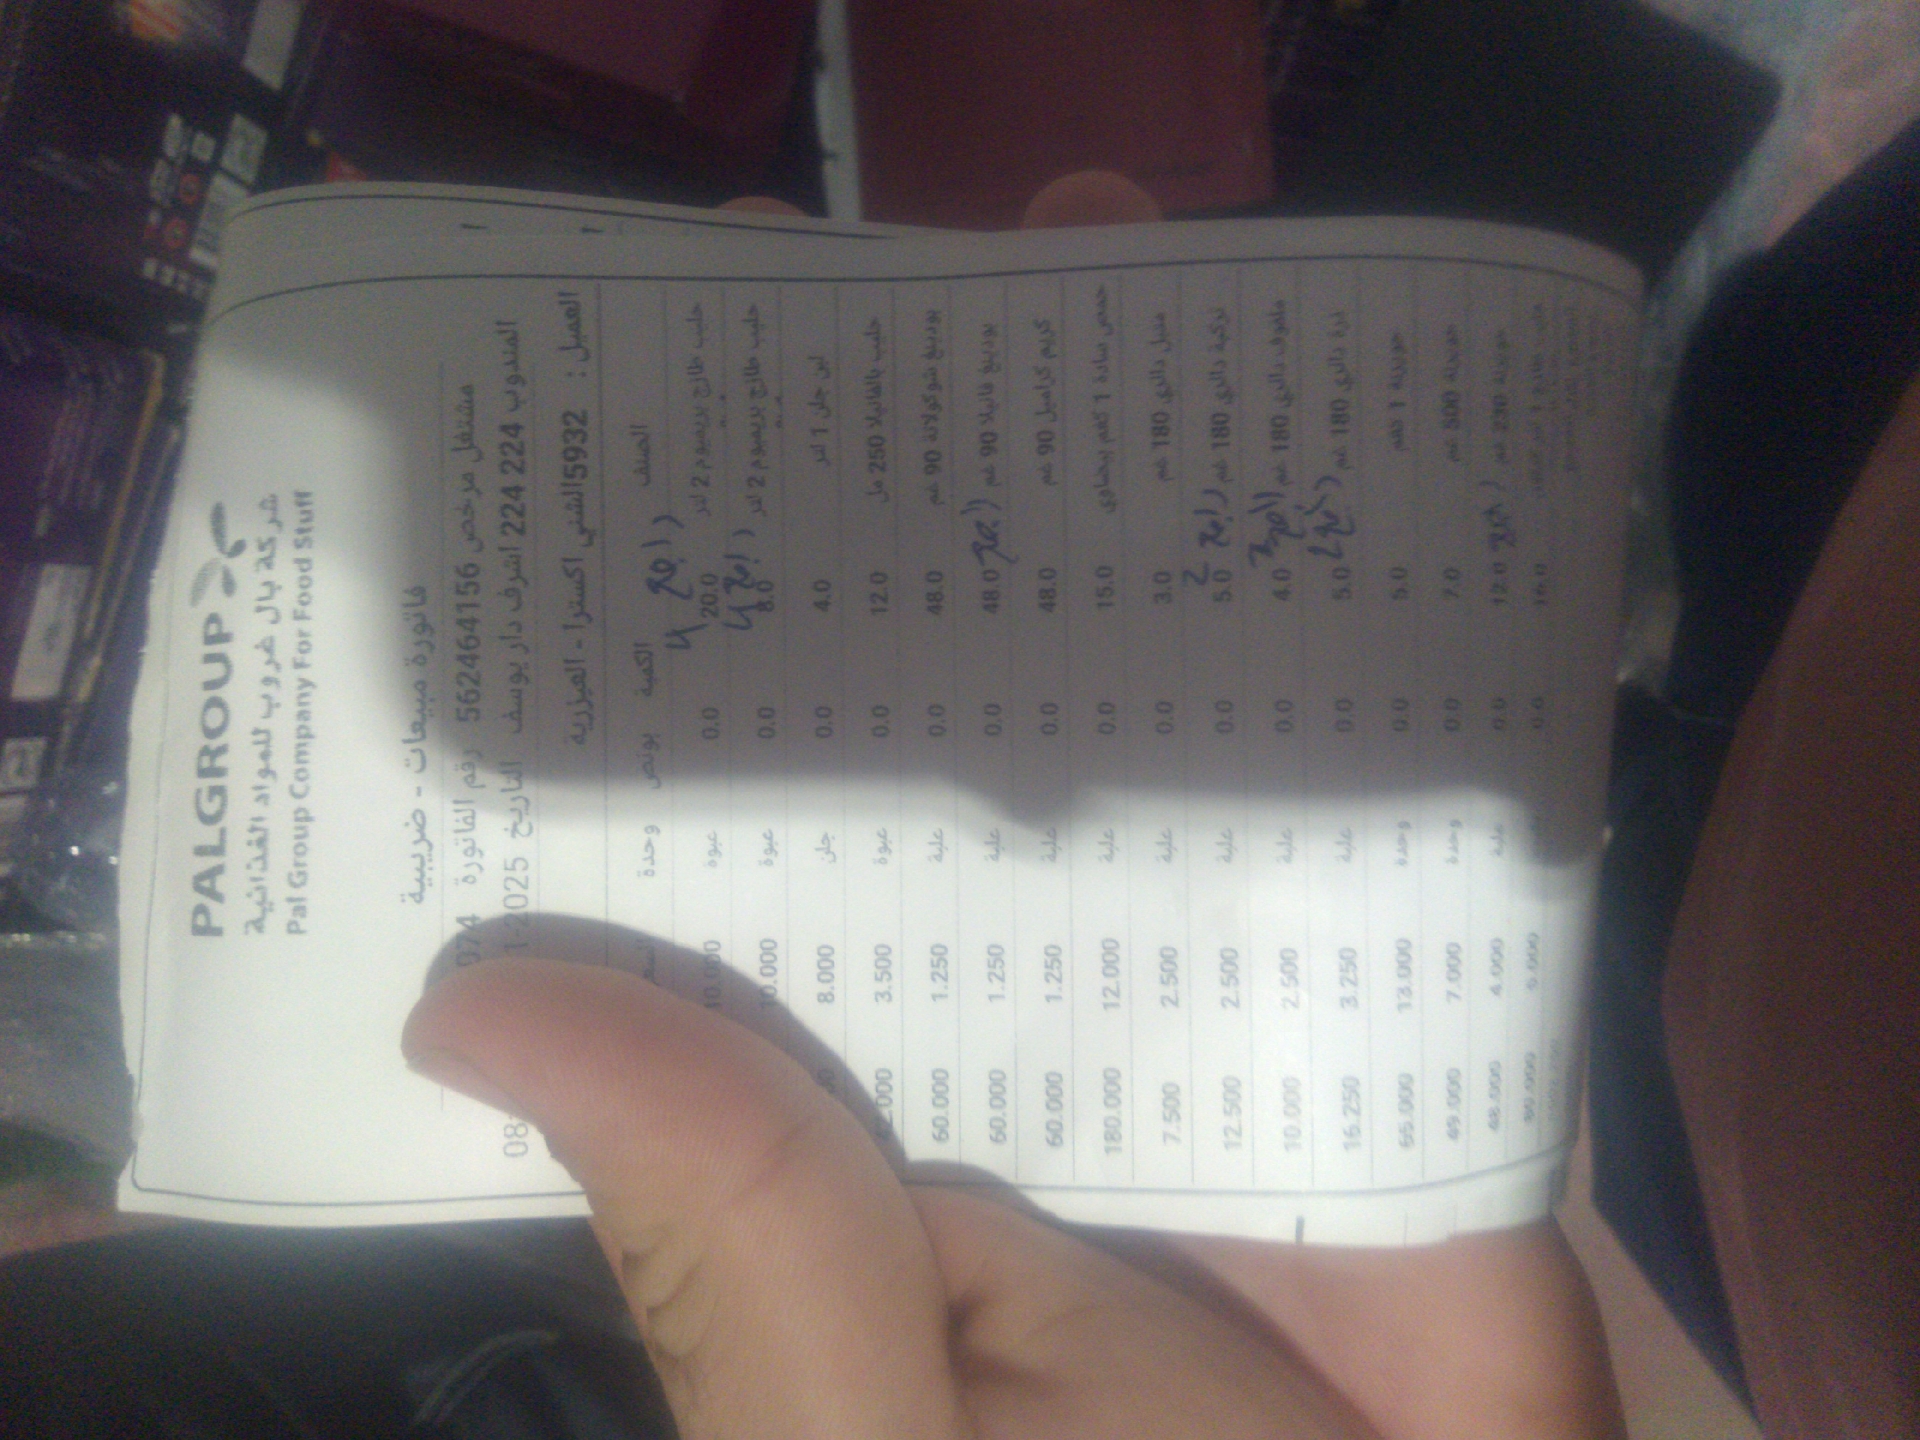 PALGROUP
شركة بال غروب للمواد الغذائية
Pal Group Company For Food Stuff
فاتورة مبيعات - ضريبية
مشتغل مرخص 562464156 رقم الفاتورة 074
المندوب 224 224 اشرف دار يوسف التاريخ
العميل : 5932الشني اكسترا - العيزرية
الصنف الكمية بونص وحدة
حليب طازج بريميوم 2 لتر 20.0 0.0 عبوة 10.000
راجع
حليب طازج بريميوم 2 لتر 8.0 0.0 عبوة 10.000
راجع
لبن جلن 1 لتر 4.0 0.0 جلن 8.000
حليب بالفانيلا 250 مل 12.0 0.0 عبوة 3.500
بودينغ شوكولاتة 90 غم 48.0 0.0 علبة 1.250 60.000
بودينغ فانيلا 90 غم 48.0 0.0 علبة 1.250 60.000
راجع
كريم كراميل 90 غم 48.0 0.0 علبة 1.250 60.000
حمص سادة 1 كغم بيضاوي 15.0 0.0 علبة 12.000 180.000
متبل دالري 180 غم 3.0 0.0 علبة 2.500 7.500
تركية دالري 180 غم 5.0 0.0 علبة 2.500 12.500
2 راجع
ملفوف دالري 180 غم 4.0 0.0 علبة 2.500 10.000
3 راجع
ذرة دالري 180 غم 5.0 0.0 علبة 3.250 16.250
راجع
1 كغم 5.0 0.0 وحدة 13.000 65.000
500 غم 7.0 0.0 وحدة 7.000 49.000
غم 12.0 0.0 علبة 4.000 48.000